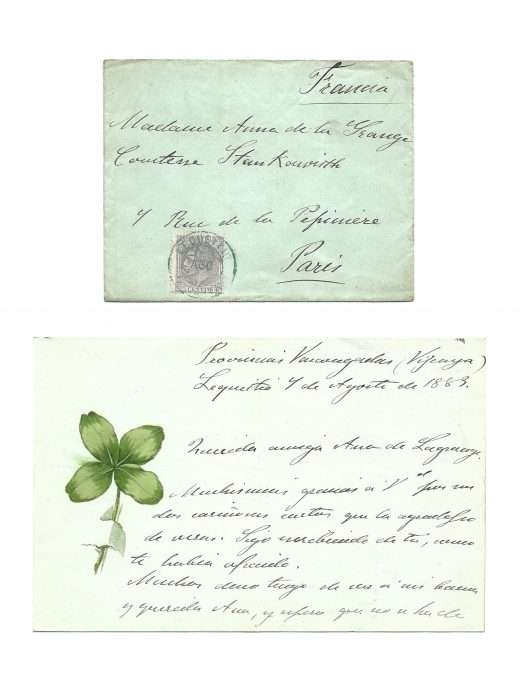 Francia
Madame Anna de la Grange
Comtesse Stankowitch
7 Rue de la Pépinière
Paris
Provincias Vascongadas (Vizcaya)
Lequeitio 7 de Agosto de 1883.
Querida amiga Ana de Lagrange.
Muchisimas gracias á V por sus
dos cariñosas cartas que la agradezco
de veras. Sigo escribiendo de tú, como
te había ofrecido.
Muchos deseos tengo de ver á mi buena
y querida Ana, y espero que no se ha de